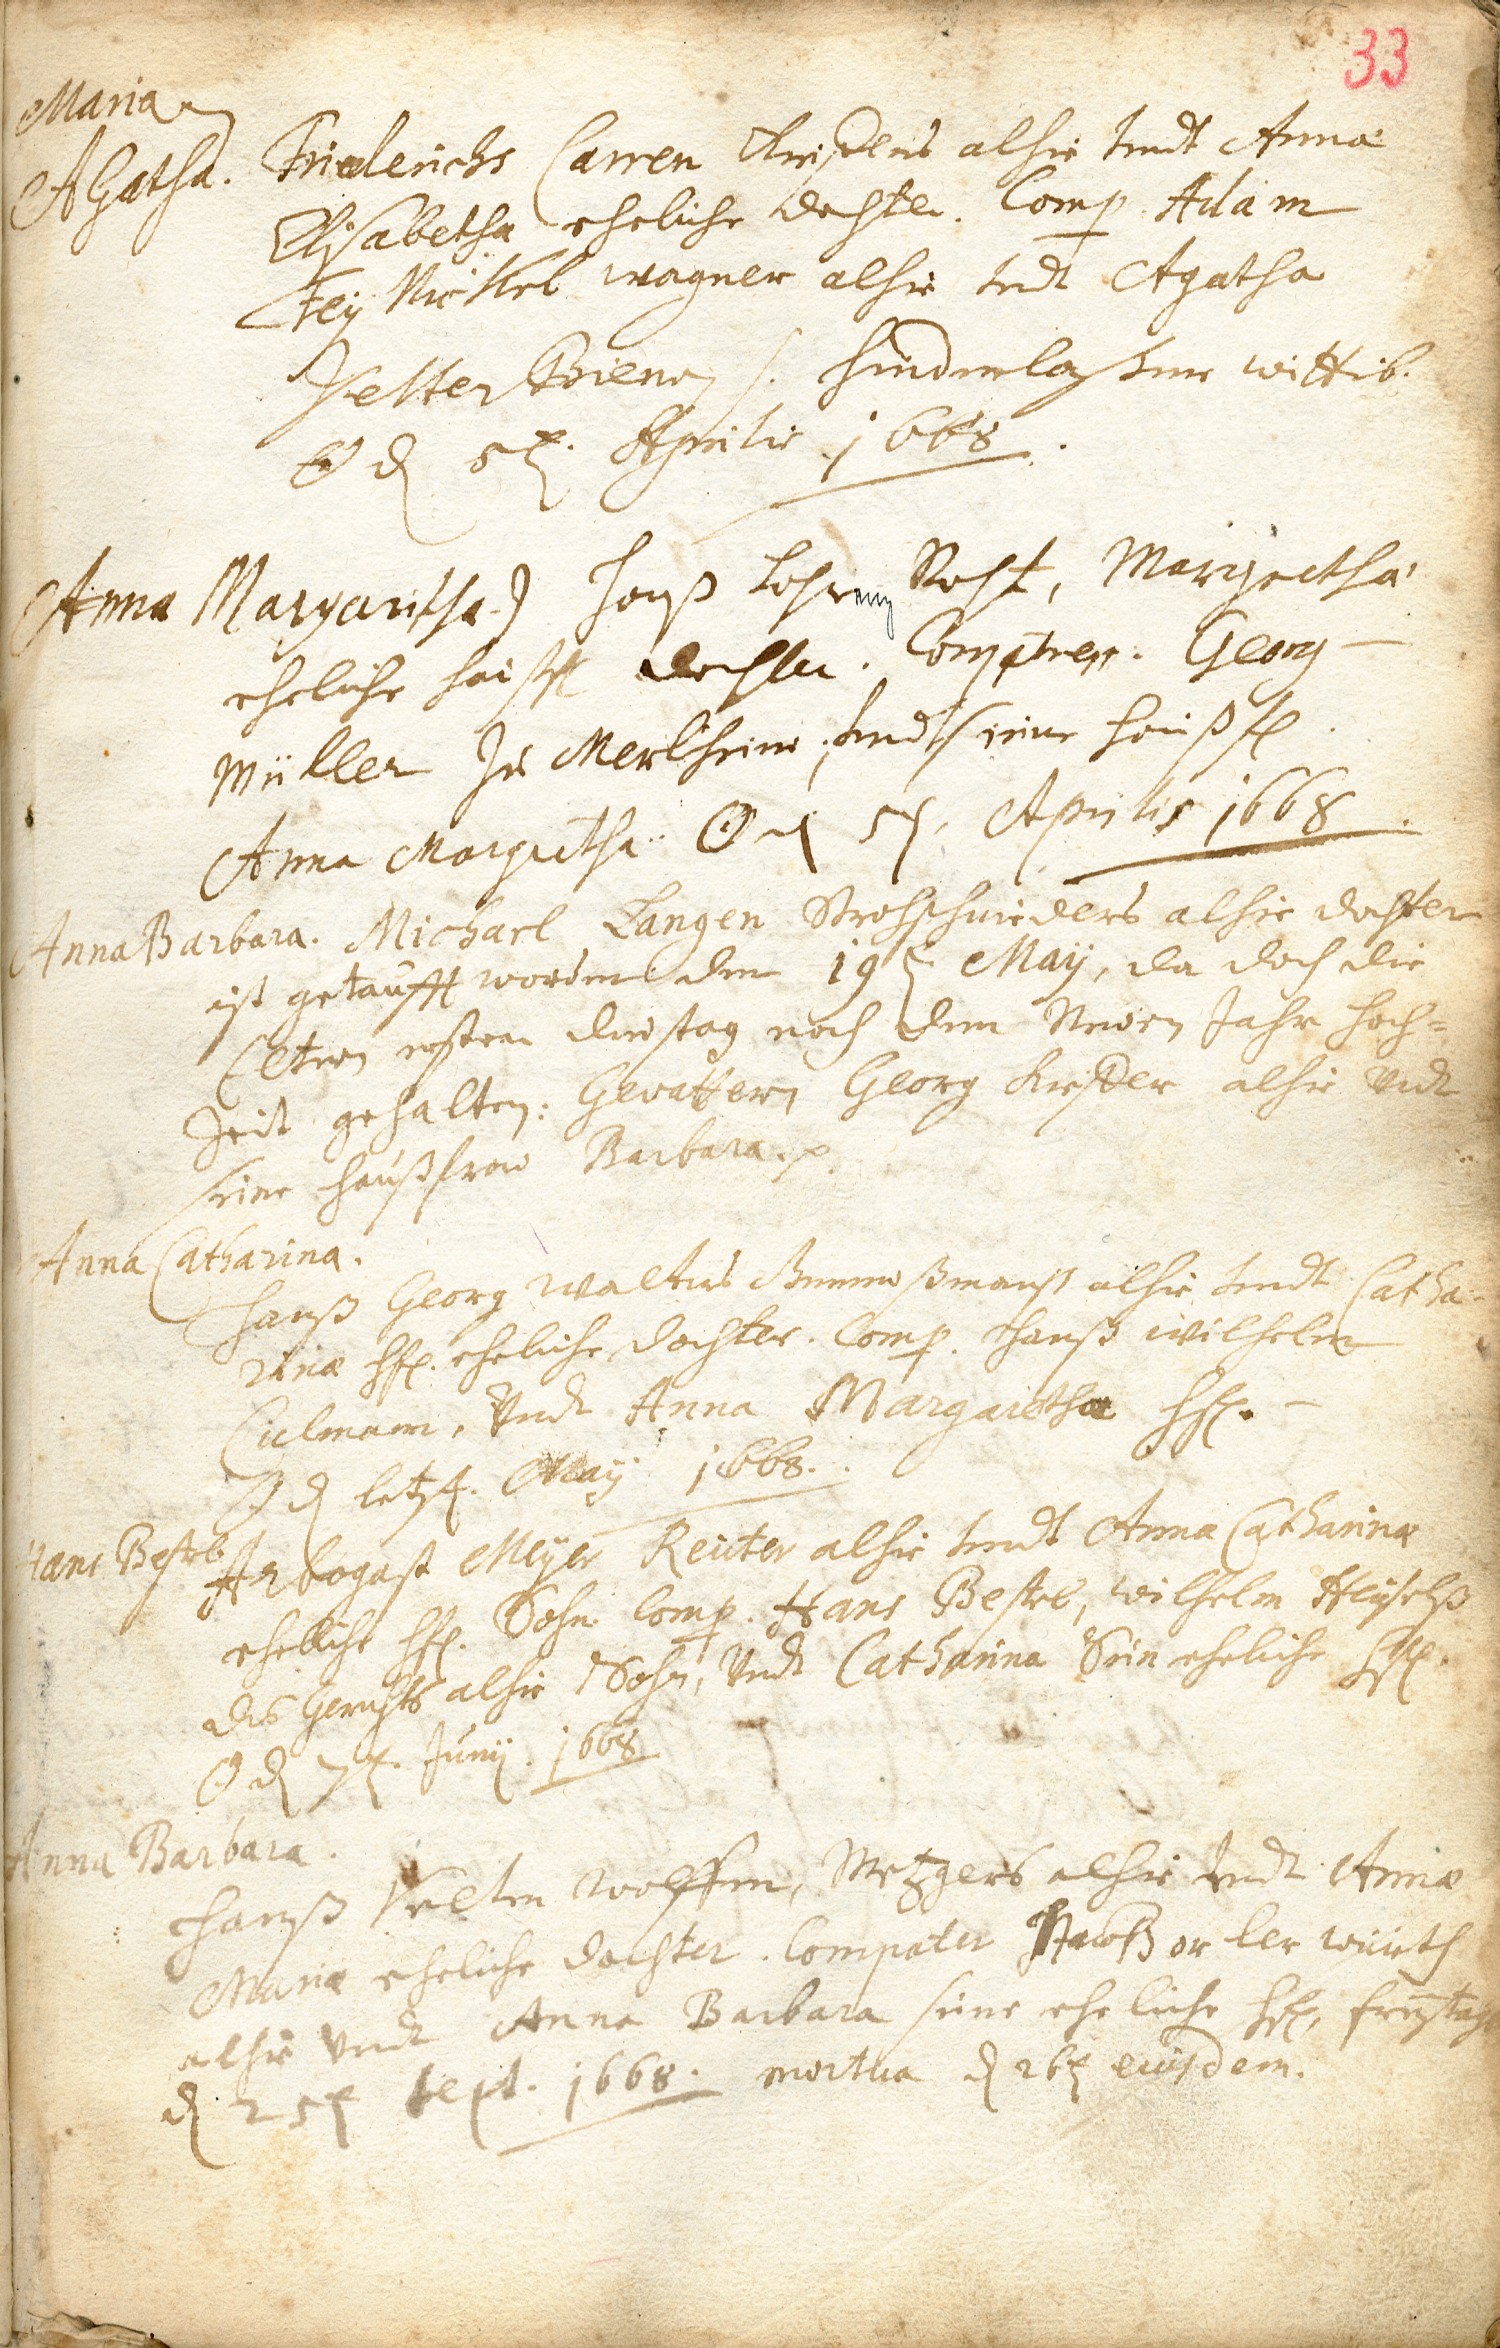 33
Maria
Agatha.
Friederichs Carren alhie undt Annæ
Elisabetha eheliche dochter. Comp. Adam
Feÿ Nickel wagner alhie undt Agatha
hinderlaßene wittib.
☉ d 5t. Aprilis 1668.
Anna Margaritha) Hanß Margretha
eheliche dochter. Georg
Müller Zu undt seine haußf.
Anna Margretha ☉ d 5t. Aprilis 1668.
Anna Barbara. Michael Langen Strohschneiders alhie dochter
ist getaufft worden den 19t. Maÿ, da doch die
Eltern ersten dinstag nach dem Newen Jahr hoch=
Zeit gehalten: Gevattern Georg alhie Undt
seine haußfraw Barbara. p.
Anna Catharina.
Hanß Georg Walters alhie undt Catha-
rinæ hf. eheliche dochter. Comp. Hanß Wilhelm
Culmann, Undt Anna Margaretha hf. –
☉ d letzt. Maÿ 1668.
Hans
Arbogast Meÿer Reüter alhie undt Anna Catharinæ
eheliche hf. Sohn Comp. Hans Wilhelm
des Gerichts alhie Sohn, Undt Catharina Sein eheliche hf.
☉ d 7t. Junÿ. 1668
Anna Barbara.
Hanß Velten Wolffen, Metzgers alhie Undt Annæ
Mariæ eheliche dochter. Compater würth
alhie Undt Anna Barbara seine eheliche hf, freÿtags
d 25t Sept. 1668. mortua d 26t eiusdem.